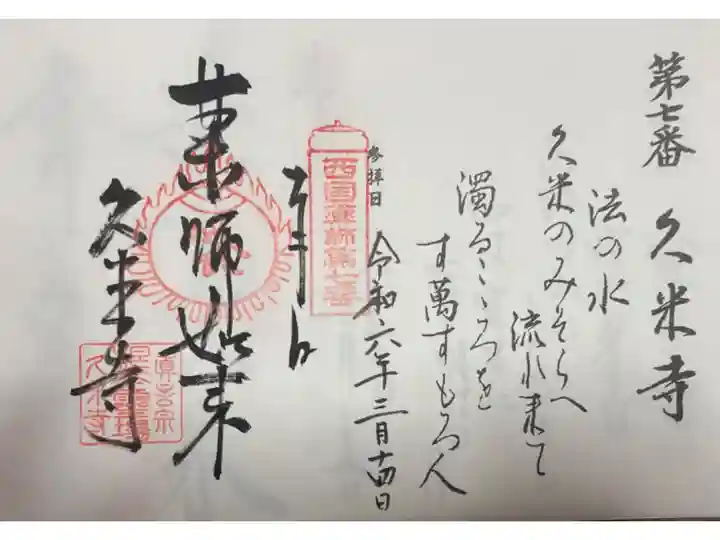 第七番 久米寺
法の水
久米のみそらへ
流れ来て
濁るこゝろを
す萬すもろ人
参拝日 令和六年三月十四日
西国薬師第七番
奉拝
薬師如来
久米寺
真言宗
久米寺